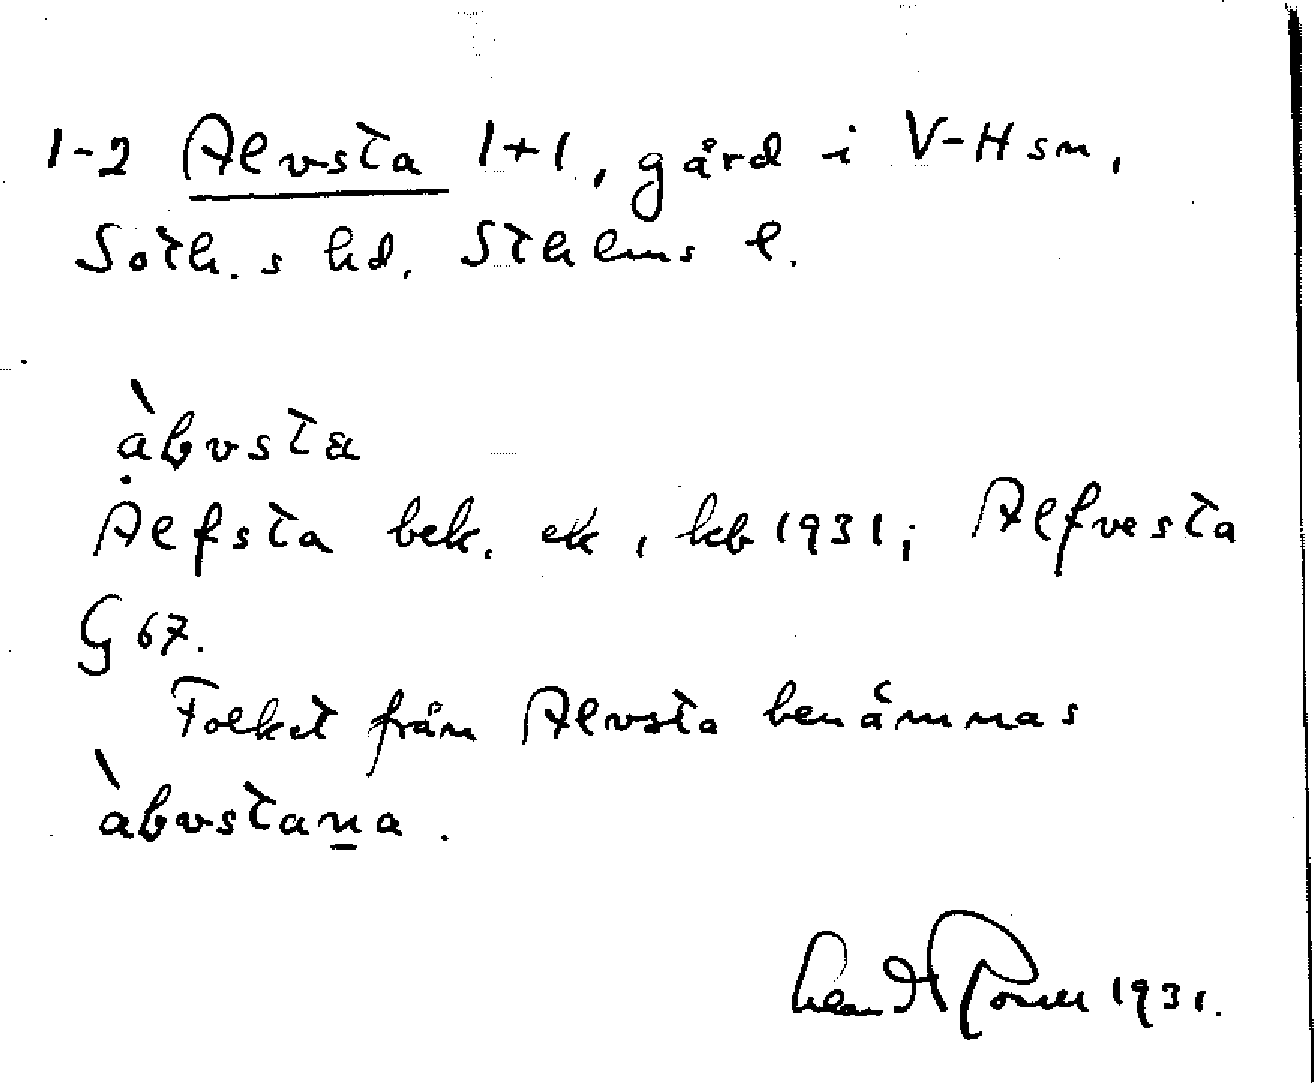 1-2 Alvsta 1+1, gård i V-H sn,
Soth. s hd. Sthlms l.
àlvsta
Alfsta bek. ek, kb 1931; Alfvesta
G 67.
Folket från Alvsta benämnas
àlvstana.
1931.